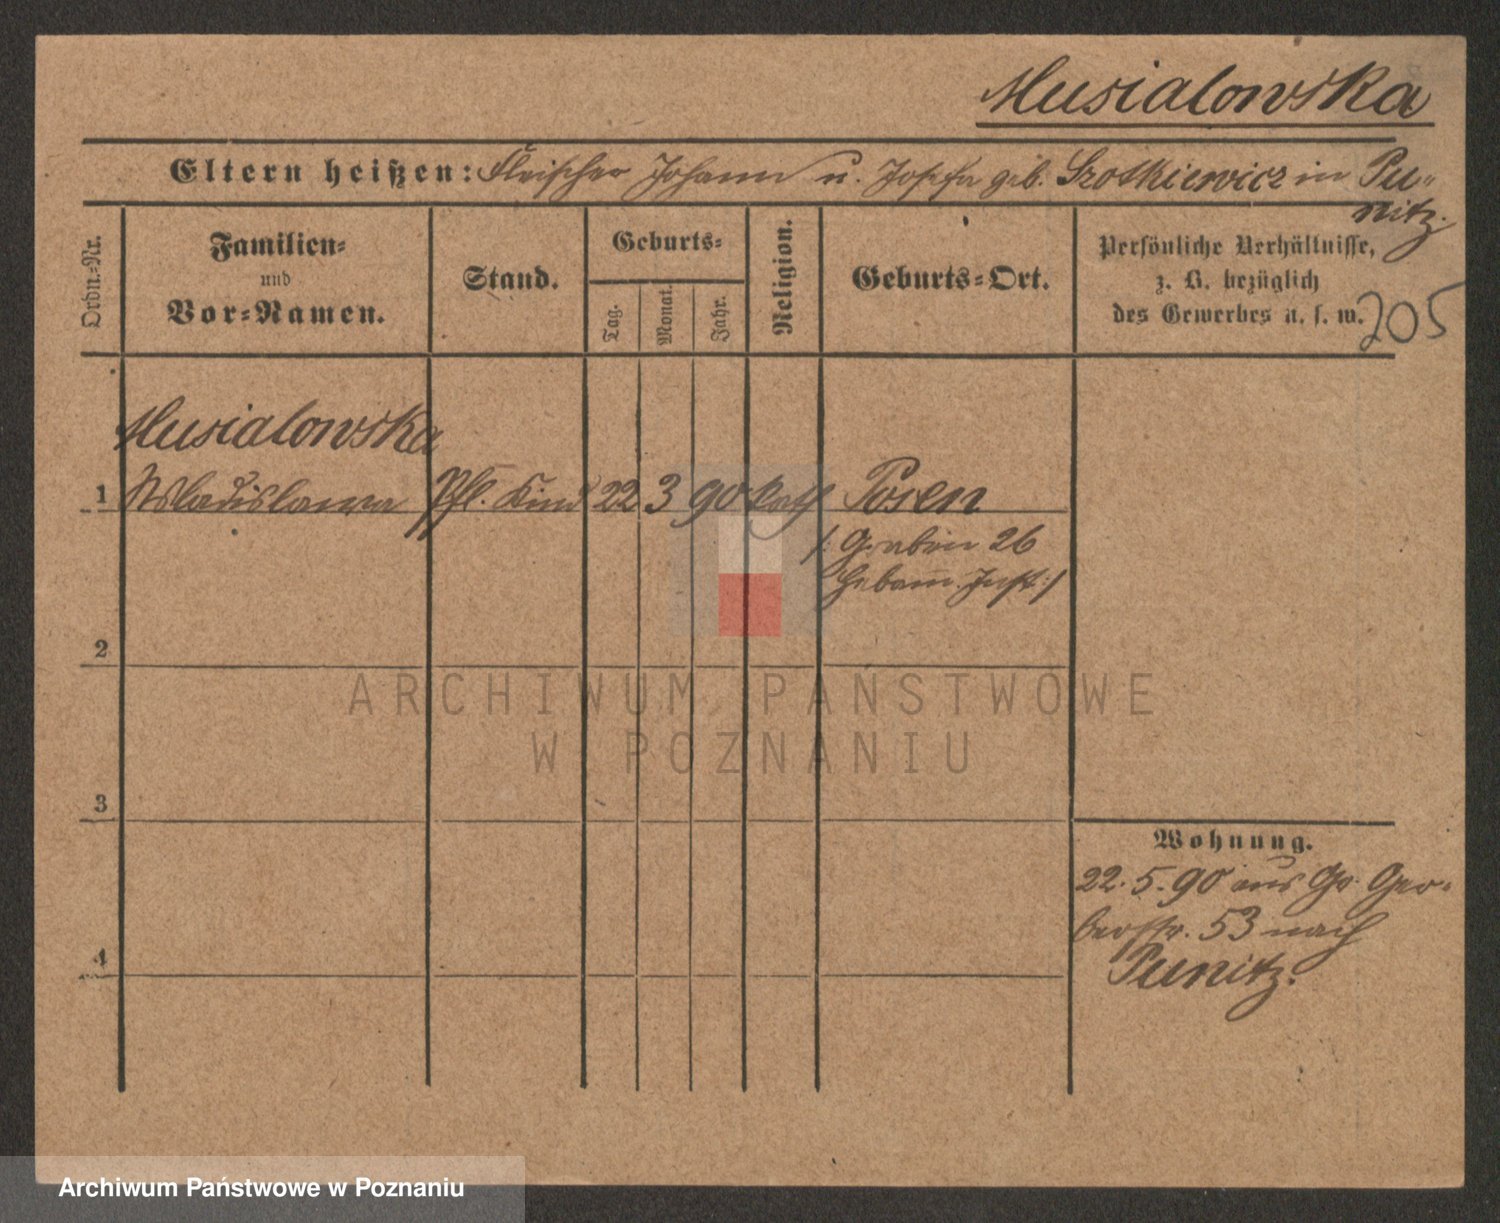 Musialowska
Eltern heißen: Fleischer Johann u. Josefa geb. Szotkiewicz in Pu-
nitz.
Ordn.-Nr.
Familien-
und
Vor-Namen.
Stand.
Geburts-
Tag.
Monat.
Jahr.
Religion.
Geburts-Ort.
Persönliche Verhältnisse,
z. B. bezüglich
des Gewerbes u. s. w.
205
Musialowska
1 Wladislawa Pfl. Kind 22 3 90 kath Posen
/: Graben 26
Hebam. Inst :/
2
3
4
Wohnung.
22.5.90 aus Gr. Ger-
berstr. 53 nach
Punitz.
ARCHIWUM PAŃSTWOWE
W POZNANIU
Archiwum Państwowe w Poznaniu